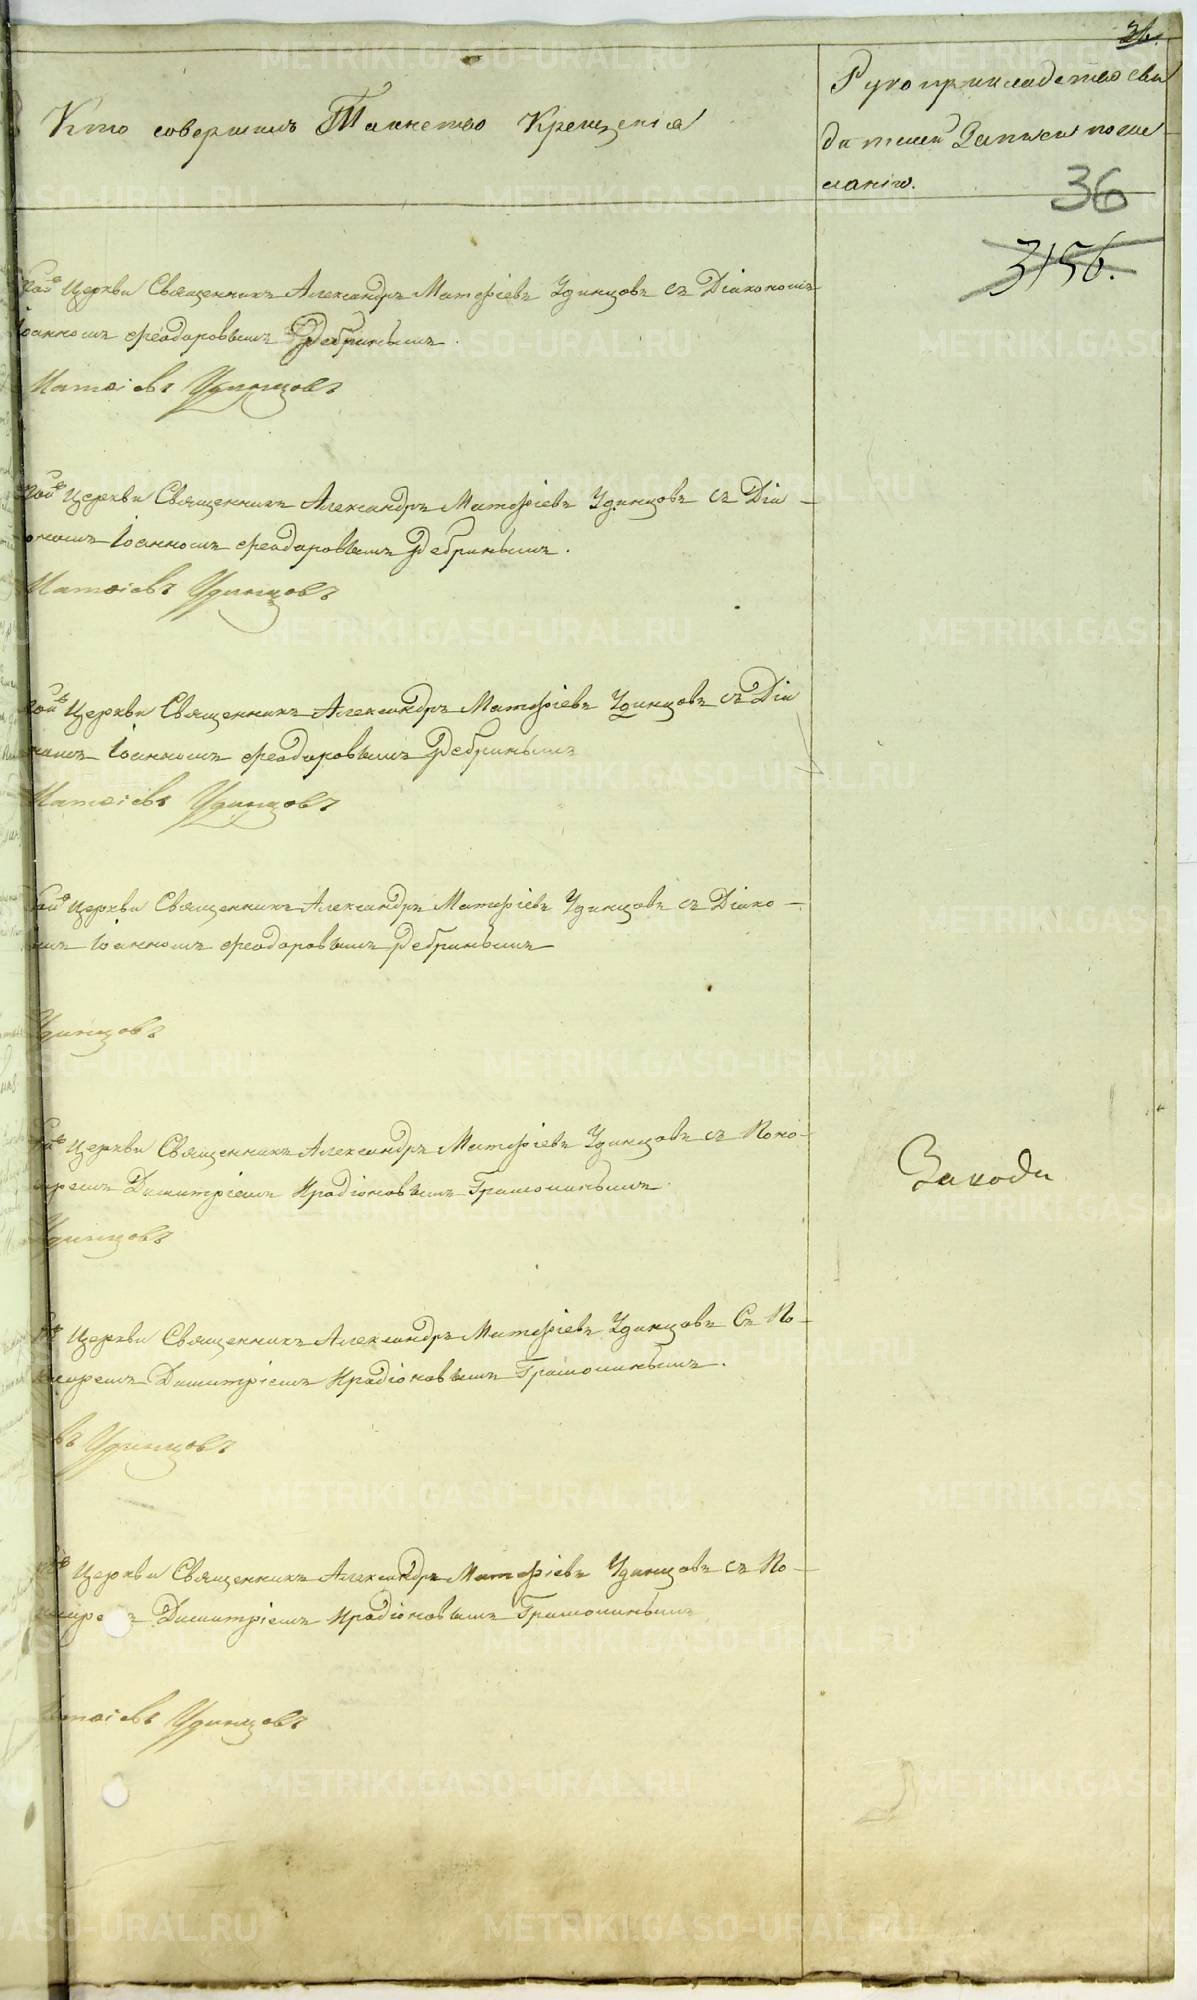 36.
Кто совершилъ Таинство Крещенія
Рукоприкладство сви
дѣтелей Записи по же
ланію.
36
315б.
Церкви Священникъ Александръ Матѳіевъ Удинцовъ съ Діакономъ
Іоанномъ Ѳеодоровымъ Дебринымъ.
Матѳіевъ Удинцовъ
Церкви Священникъ Александръ Матѳіевъ Удинцовъ съ Діа-
кономъ Іоанномъ Ѳеодоровымъ Дебринымъ.
Матѳіевъ Удинцовъ
Церкви Священникъ Александръ Матѳіевъ Удинцовъ съ Діа
Іоанномъ Ѳеодоровымъ Дебринымъ
Матѳіевъ Удинцовъ
Церкви Священникъ Александръ Матѳіевъ Удинцовъ съ Діако-
Іоанномъ Ѳеодоровымъ Дебринымъ
Удинцовъ
Церкви Священникъ Александръ Матѳіевъ Удинцовъ съ Поно-
Димитріемъ Иродіоновымъ
Удинцовъ
Церкви Священникъ Александръ Матѳіевъ Удинцовъ Съ По-
Димитріемъ Иродіоновымъ
въ Удинцовъ
Церкви Священникъ Александръ Матѳіевъ Удинцовъ съ По-
Димитріемъ Иродіоновымъ
Матѳіевъ Удинцовъ
METRIKI.GASO-URAL.RU